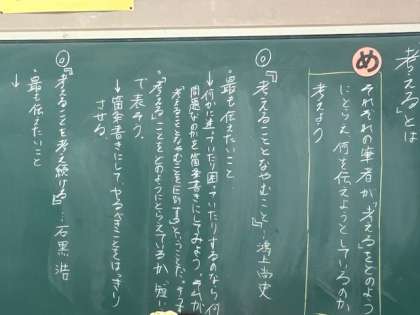 考える」とは
め
それぞれの筆者が、「考える」をどのよう
にとらえ、何を伝えようとしているのか
考えよう
◎『考えることとなやむこと』鴻上尚史
・最も伝えたいこと
↓何かに迷っていたり困っていたりするのなら、何
問題なのかを箇条書きにしてみよう。それが
「考えることとなやむことを区別する」ということだ。
「考える」ことをどのようにとらえているか、短い
で表そう。
↓箇条書きにして、やるべきことをはっきり
させる。
◎『考えることを考え続ける』…石黒浩
・最も伝えたいこと
↓